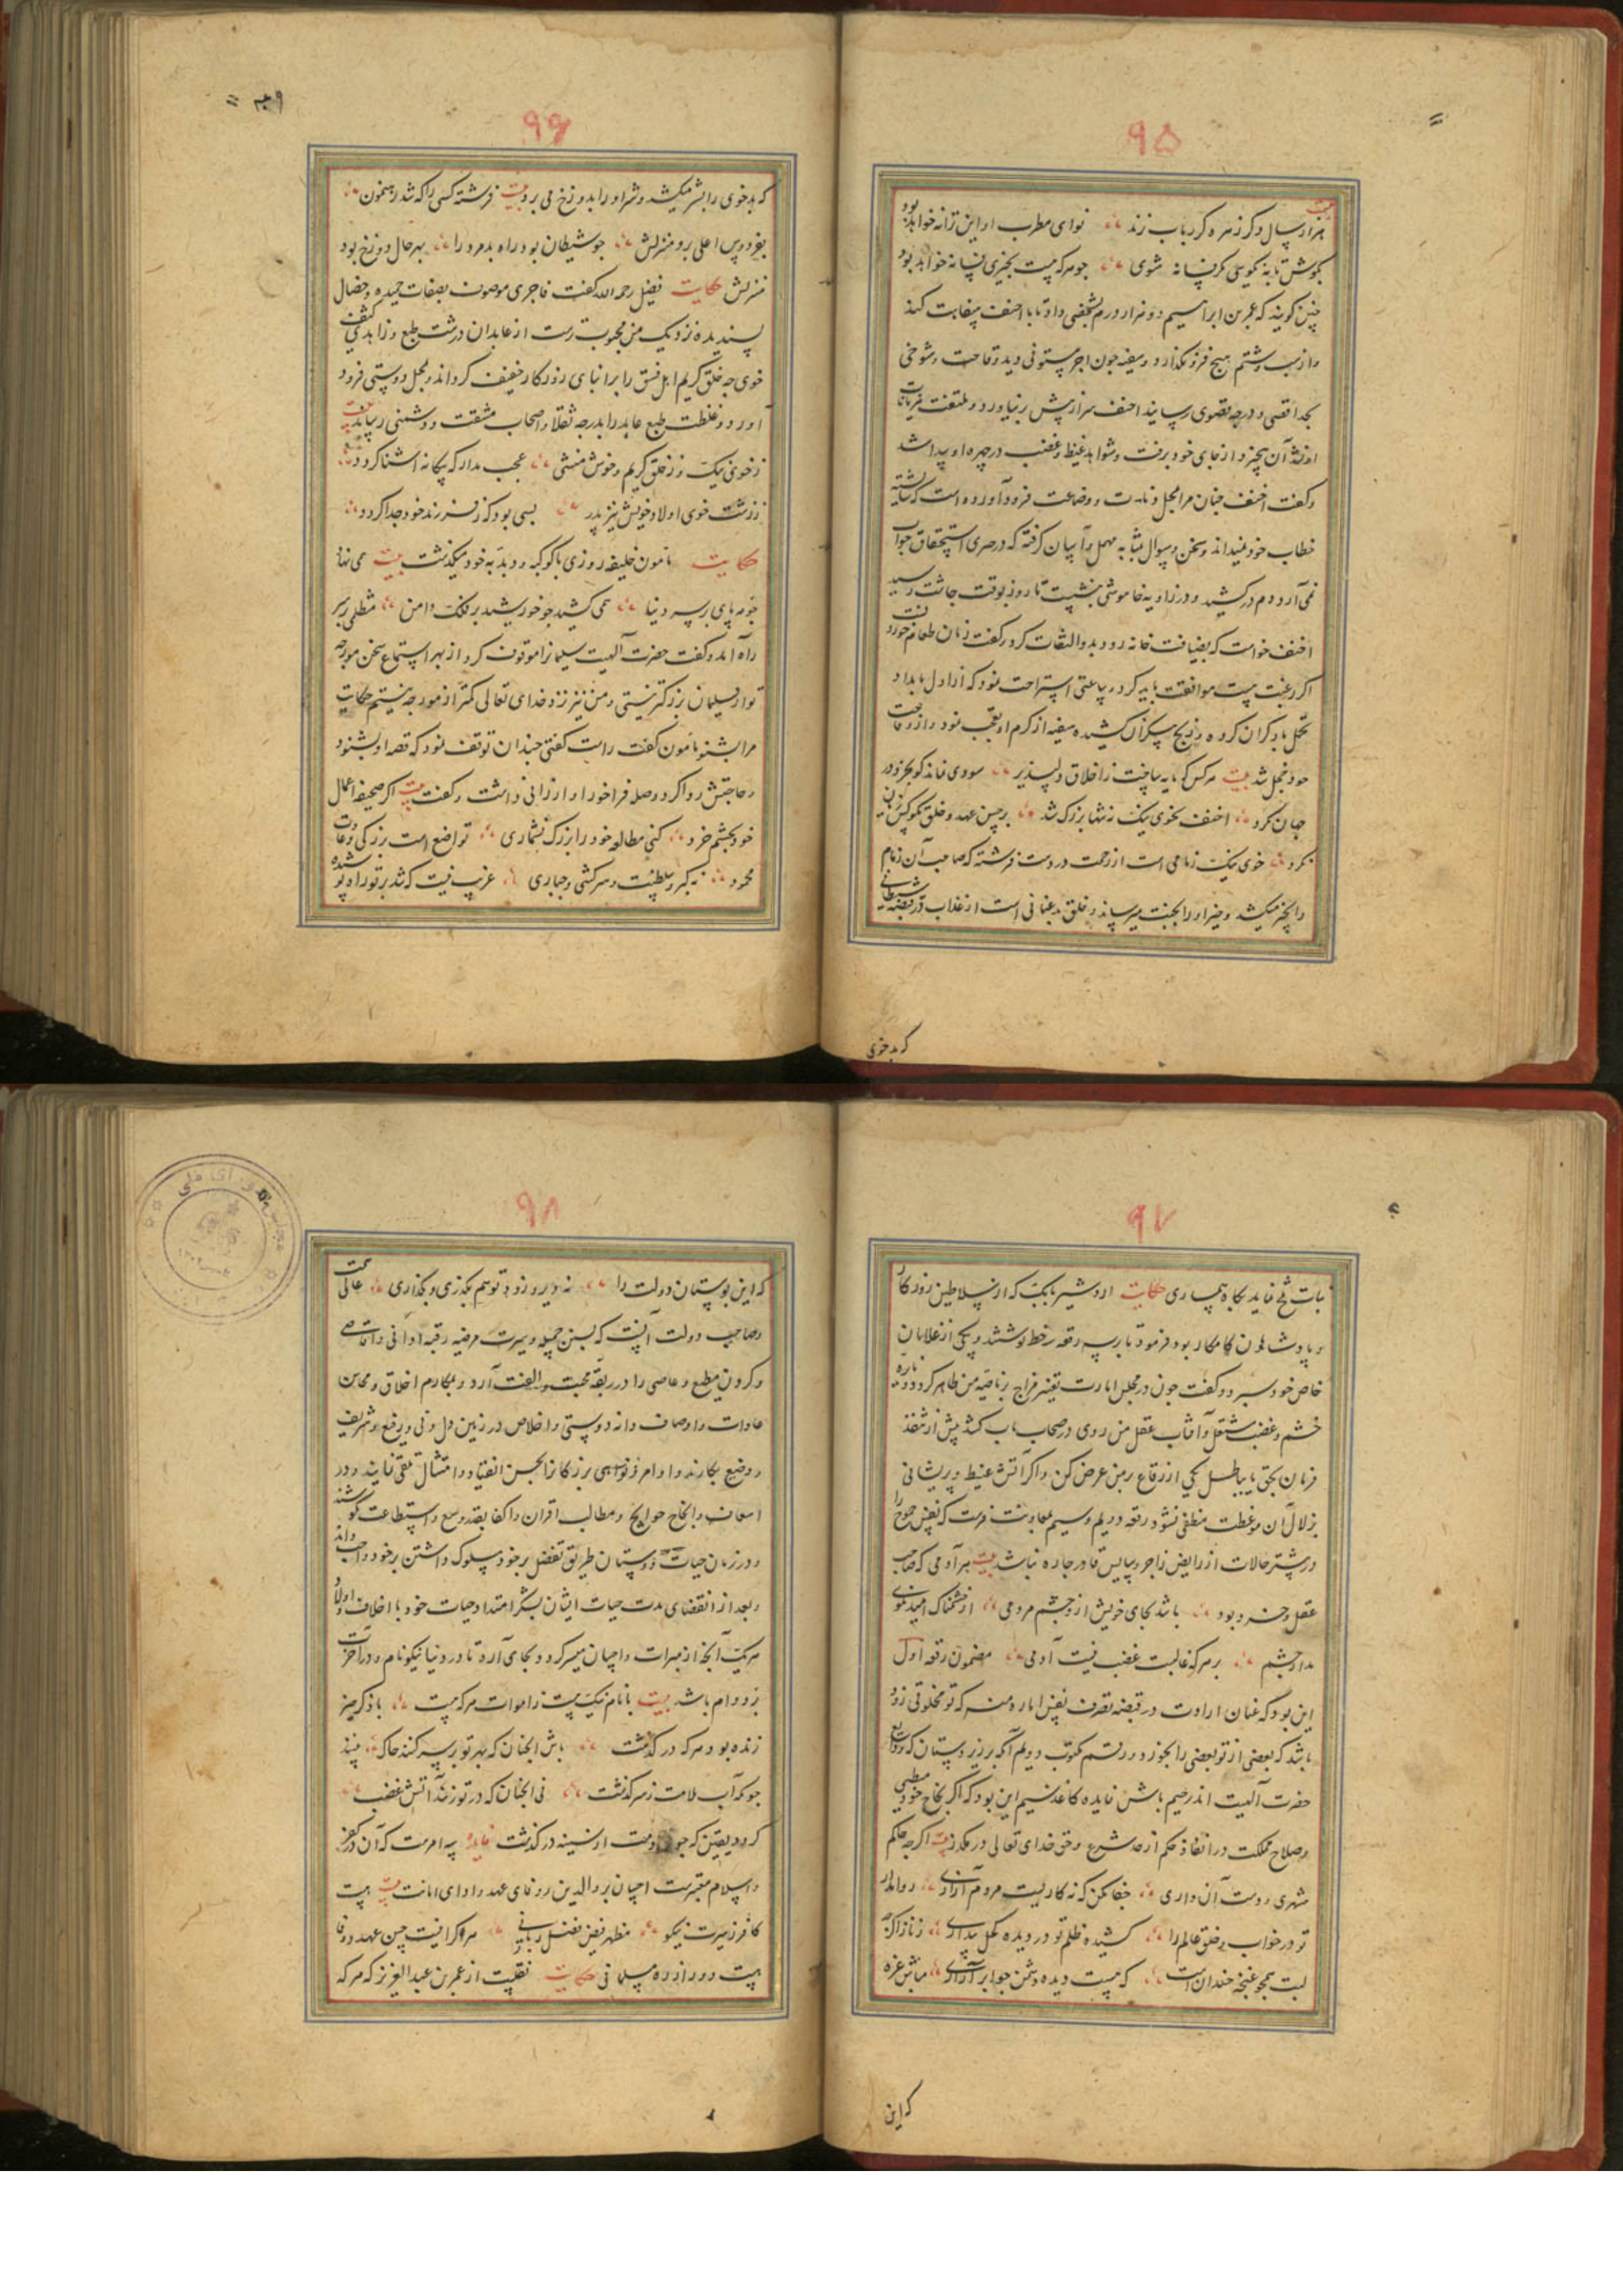 ۹۵
بیت
هزار سال دگر زهره گر رباب زند نوای مطرب او این ترانه خواهد بود
بکوش تا به نکویی فسانه شوی چو هر که هست بخیری فسانه خواهد بود
چنین گویند که عمر بن ابراهیم دو هزار درم بشخصی داد تا با احنف سفاهت کند
و از سب و شتم هیچ فرو نگذارد و سفیه چون اجر مستوفی دید وقاحت و شوخی
بحد اقصی و درجه قصوی رسانید احنف سر از پیش بر نیاورد و ملتفت
از جای خود برفت و شواهد غیظ و غضب در چهره او پیدا شد
و گفت احنف چنان مرا محل و وضاعت فرود آورده است که شایسته
خطاب خود نمیداند و سخن و سوال بمثابه مهمل و آسان گرفته که در معرض استحقاق جواب
نمی آرد و دم در کشید و در زاویه خاموشی بنشست تا روز بوقت چاشت رسید
احنف خواست که بضیافت خانه رود بدو التفات کرد و گفت زمان طعام خوردنست
اگر رغبت هست موافقت باید کرد و ساعتی استراحت نمود که از اول بامداد
تحمل بار گران کرده و رنج بیکران کشیده سفیه از کرم او تعجب نمود و از وقاحت
خود خجل شد بیت هر کس که مایه ساخت ز اخلاق دلپذیر سودی نماند کو بجز در
جهان نکرد احنف بخوی نیک نه تنها بزرگ شد بر حسن عهد و خلق نکو کس زیان
نکرد خوی نیک زمامی است از رحمت در دست فرشته که صاحب آن زمام
را بخیر میکشد و خیر او را بجنت میرساند و خلق بد عنانی است از عذاب در قبضه شیطانی
که بدخوی
۹۶
که بدخوی را بشر میکشد و شر او را بدوزخ می برد بیت فرشته کسی را که شد رهنمون
بفردوس اعلی برد منزلش چو شیطان بود راه بد مرد را بهر حال دوزخ بود
منزلش حکایت فضیل رحمه الله گفت فاجری موصوف بصفات حمیده و خصال
پسندیده نزدیک من محبوب ترست از عابدان درشت طبع و زاهد کثیف
خوی چه خلق کریم اهل فسق را بر ابنای روزگار خفیف گرداند و بمحل دوستی فرود
آورد و غلظت طبع عابد را بدرجه ثقلا و اصحاب مشقت و دشمنی رساند بیت
ز خوی نیک و ز خلق کریم و خوش منشی عجب مدار که بیگانه آشنا گردد
ز زشت خوی اولاد خویش نیز پدر بسی بود که ز فرزند خود جدا گردد
حکایت مامون خلیفه روزی با کوکبه و دبدبه خود میگذشت بیت همی نهاد
چو مه پای بر سر دنیا همی کشید چو خورشید بر فلک دامن متظلمی بر سر
راه آمد و گفت حضرت الهیت سلیمان را موقوف کرد از بهر استماع سخن مورچه
تو از سلیمان بزرگتر نیستی و من نیز نزد خدای تعالی کمتر از مورچه نیستم حکایت
مرا بشنو مامون گفت راست گفتی چندان توقف نمود که قصه او بشنود
و حاجتش روا کرد و وصله فراخور او ارزانی داشت و گفت بیت اگر صحیفه اعمال
خود بچشم خرد کنی مطالعه خود را بزرگ نشماری تواضع است بزرگی و عادت
محمود نه کبر و سلطنت و سرکشی و جباری غریب نیست که شد بر تو راه پوشیده
۹۷
ثبات فخ نماید بگاه همساری حکایت اردشیر بابک که از سلاطین روزگار
و پادشاهان کامکار بود فرمود تا بر سه رقعه خط نوشتند و یکی از غلامان
خاص خود سپرد و گفت چون در محل امارت تغییر مزاج بر ناصیه من ظاهر گردد و ناره
خشم و غضب مشتعل و آفتاب عقل من روی در سحاب کشد پیش از تنفیذ
فرمان بحق یا بباطل یکی از رقاع بر من عرض کن و اگر آتش غیظ و پریشانی
بزلال آن موعظت منطفی نشود رقعه دویم و سیم بمعاونت فرست که نفس جموح را
در بیشتر حالات از رایض زاجر و سایس قادر چاره نباشد بیت هر آدمی که صاحب
عقل و خرد بود باشد بجای خویش از و چشم مردمی از خشمناک امید نکویی
مدار چشم بر هر که غالبست غضب نیست آدمی مضمون رقعه اول
این بود که عنان ارادت در قبضه تصرف نفس اماره منه که تو مخلوقی زود
باشد که بعضی از تو بعضی را بخورد و رقم مکتوب دویم آنکه بر زیر دستان که ودایع
حضرت الهیت اند رحیم باش فایده کاغذ سیم این بود که اگر نجاح خود می طلبی
و صلاح مملکت در انفاذ حکم از حد شرع و حق خدای تعالی در مگذر بیت اگر چه حکم
شهری بدست آن داری جفا مکن که نه کاریست مردم آزاری روا مدار
تو در خواب و خلق عالم را کشیده ظلم تو در دیده کحل بیداری
لبت همچو غنچه خندان است که هست دیده دشمن چو ابر آزاری مباش غره
که این
۹۸
که این بوستان دولت را نه دیر و زود تو هم بگذری و بگذاری عالی همت
و صاحب دولت آنست که بسنن جمیله و سیرت مرضیه رقبه ادانی و اقاصی
و گردن مطیع و عاصی را در ربقه محبت و الفت آرد و بمکارم اخلاق و محاسن
عادات و اوصاف دانه دوستی و اخلاص در زمین دل دنی و رفیع و شریف
و وضیع بکارند و اوامر و نواهی بزرگان را بحسن انقیاد و امتثال تلقی نمایند و در
اسعاف و انجاح حوایج و مطالب اقران و اکفا بقدر وسع و استطاعت کوشند
و در زمان حیات دوستان طریق تفضل بر خود سلوک داشتن بر خود واجب داند
و بعد از انقضای مدت حیات ایشان بشکر امتداد حیات خود با اخلاف و اولاد
هر یک آنچه از مبرات و احسان میسر گردد بجای آرد تا در دنیا نیکونام و در آخرت
بر دوام باشد بیت با نام نیک هست ز اموات هر که هست با ذکر خیر
زنده بود هر که در گذشت باش انچنان که بهر تو بر سر کنند خاک بینند
چونکه آب ملامت ز سر گذشت نی انچنان که در تو زند آتش غضب
گردد یقین که از سینه در گذشت فایده سه امرست که آن در کفر
و اسلام معتبرست احسان بر والدین و وفای عهد و ادای امانت بیت هست
کافر ز سیرت نیکو مظهر فیض فضل ربانی هر که را نیست حسن عهد و وفا
هست دور از ره مسلمانی حکایت نقلست از عمر بن عبد العزیز که هر که